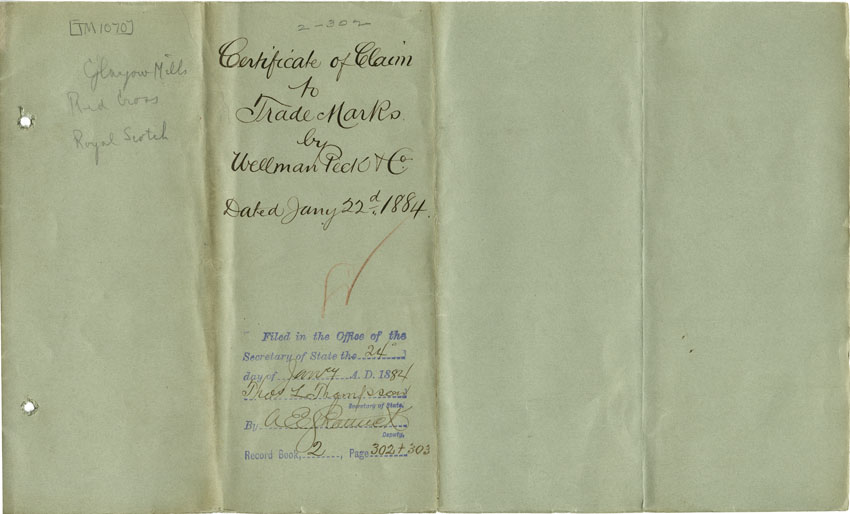 [TM 1070]
Glasgow Mills
Red Cross
Royal Scotch
2-302
Certificate of Claim
to
Trade Marks
by
Wellman Peck & Co
Dated Jany 22d, 1884.
Filed in the Office of the
Secretary of State the 24"
day of Jany A. D. 1884
Thos L. Thompson
Secretary of State.
By A E
Deputy.
Record Book, 2, Page 302 + 303